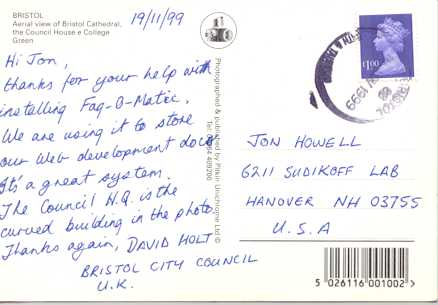 BRISTOL
Aerial view of Bristol Cathedral,
the Council House e College
Green
19/11/99
Hi Jon,
thanks for your help with
installing Faq-O-Matic.
We are using it to store
our Web development docs
It's a great system.
The Council H.Q. is the
curved building in the photo.
Thanks again, DAVID HOLT
BRISTOL CITY COUNCIL
U.K.
Photographed & published by
£1.00
1999
JON HOWELL
6211 SUDIKOFF LAB
HANOVER NH 03755
U.S.A
5 026116 001002 >